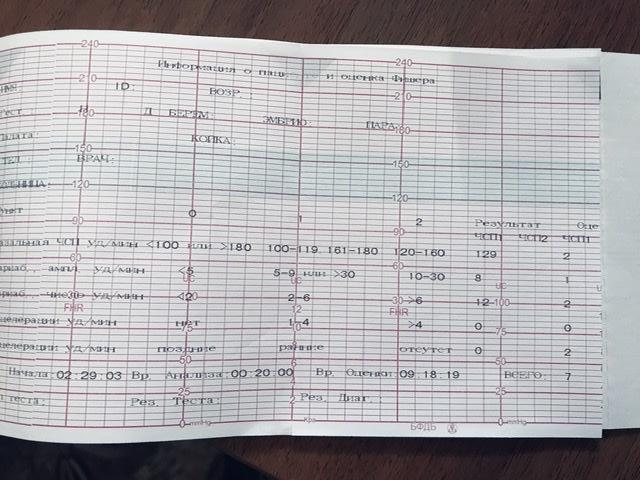 240 240
Информация о и оценка Фишера
210 210
ID: ВОЗР.
180 Д БЕРЕМ: ЭМБРИО: ПАРА: 180
КОЙКА:
150 150
ТЕЛ : ВРАЧ:
120 120
90 90
0 1 2 Результат Оце
ЧСП1 ЧСП2 ЧСП1
ЧСП УД/МИН <100 или >180 100-119, 161-180 120-160 129 2
60 60
ампл. УД/МИН <5 5-9 или >30 10-30 8 1
UC UC UC
число УД/МИН <2 2-6 30 >6 12 100 2
FHR 12 FHR
УД/МИН нет 1-4 >4 0 75 0
УД/МИН поздние ранние отсутст 0 2
50 50
Начала:02:29:03 Вр. Анализа:00:20:00 Вр. Оценки:09:18:19 ВСЕГО: 7
25 25
Рез. Теста: Рез. Диаг.:
0 mmHg Kpa БФДЬ 0 mmHg